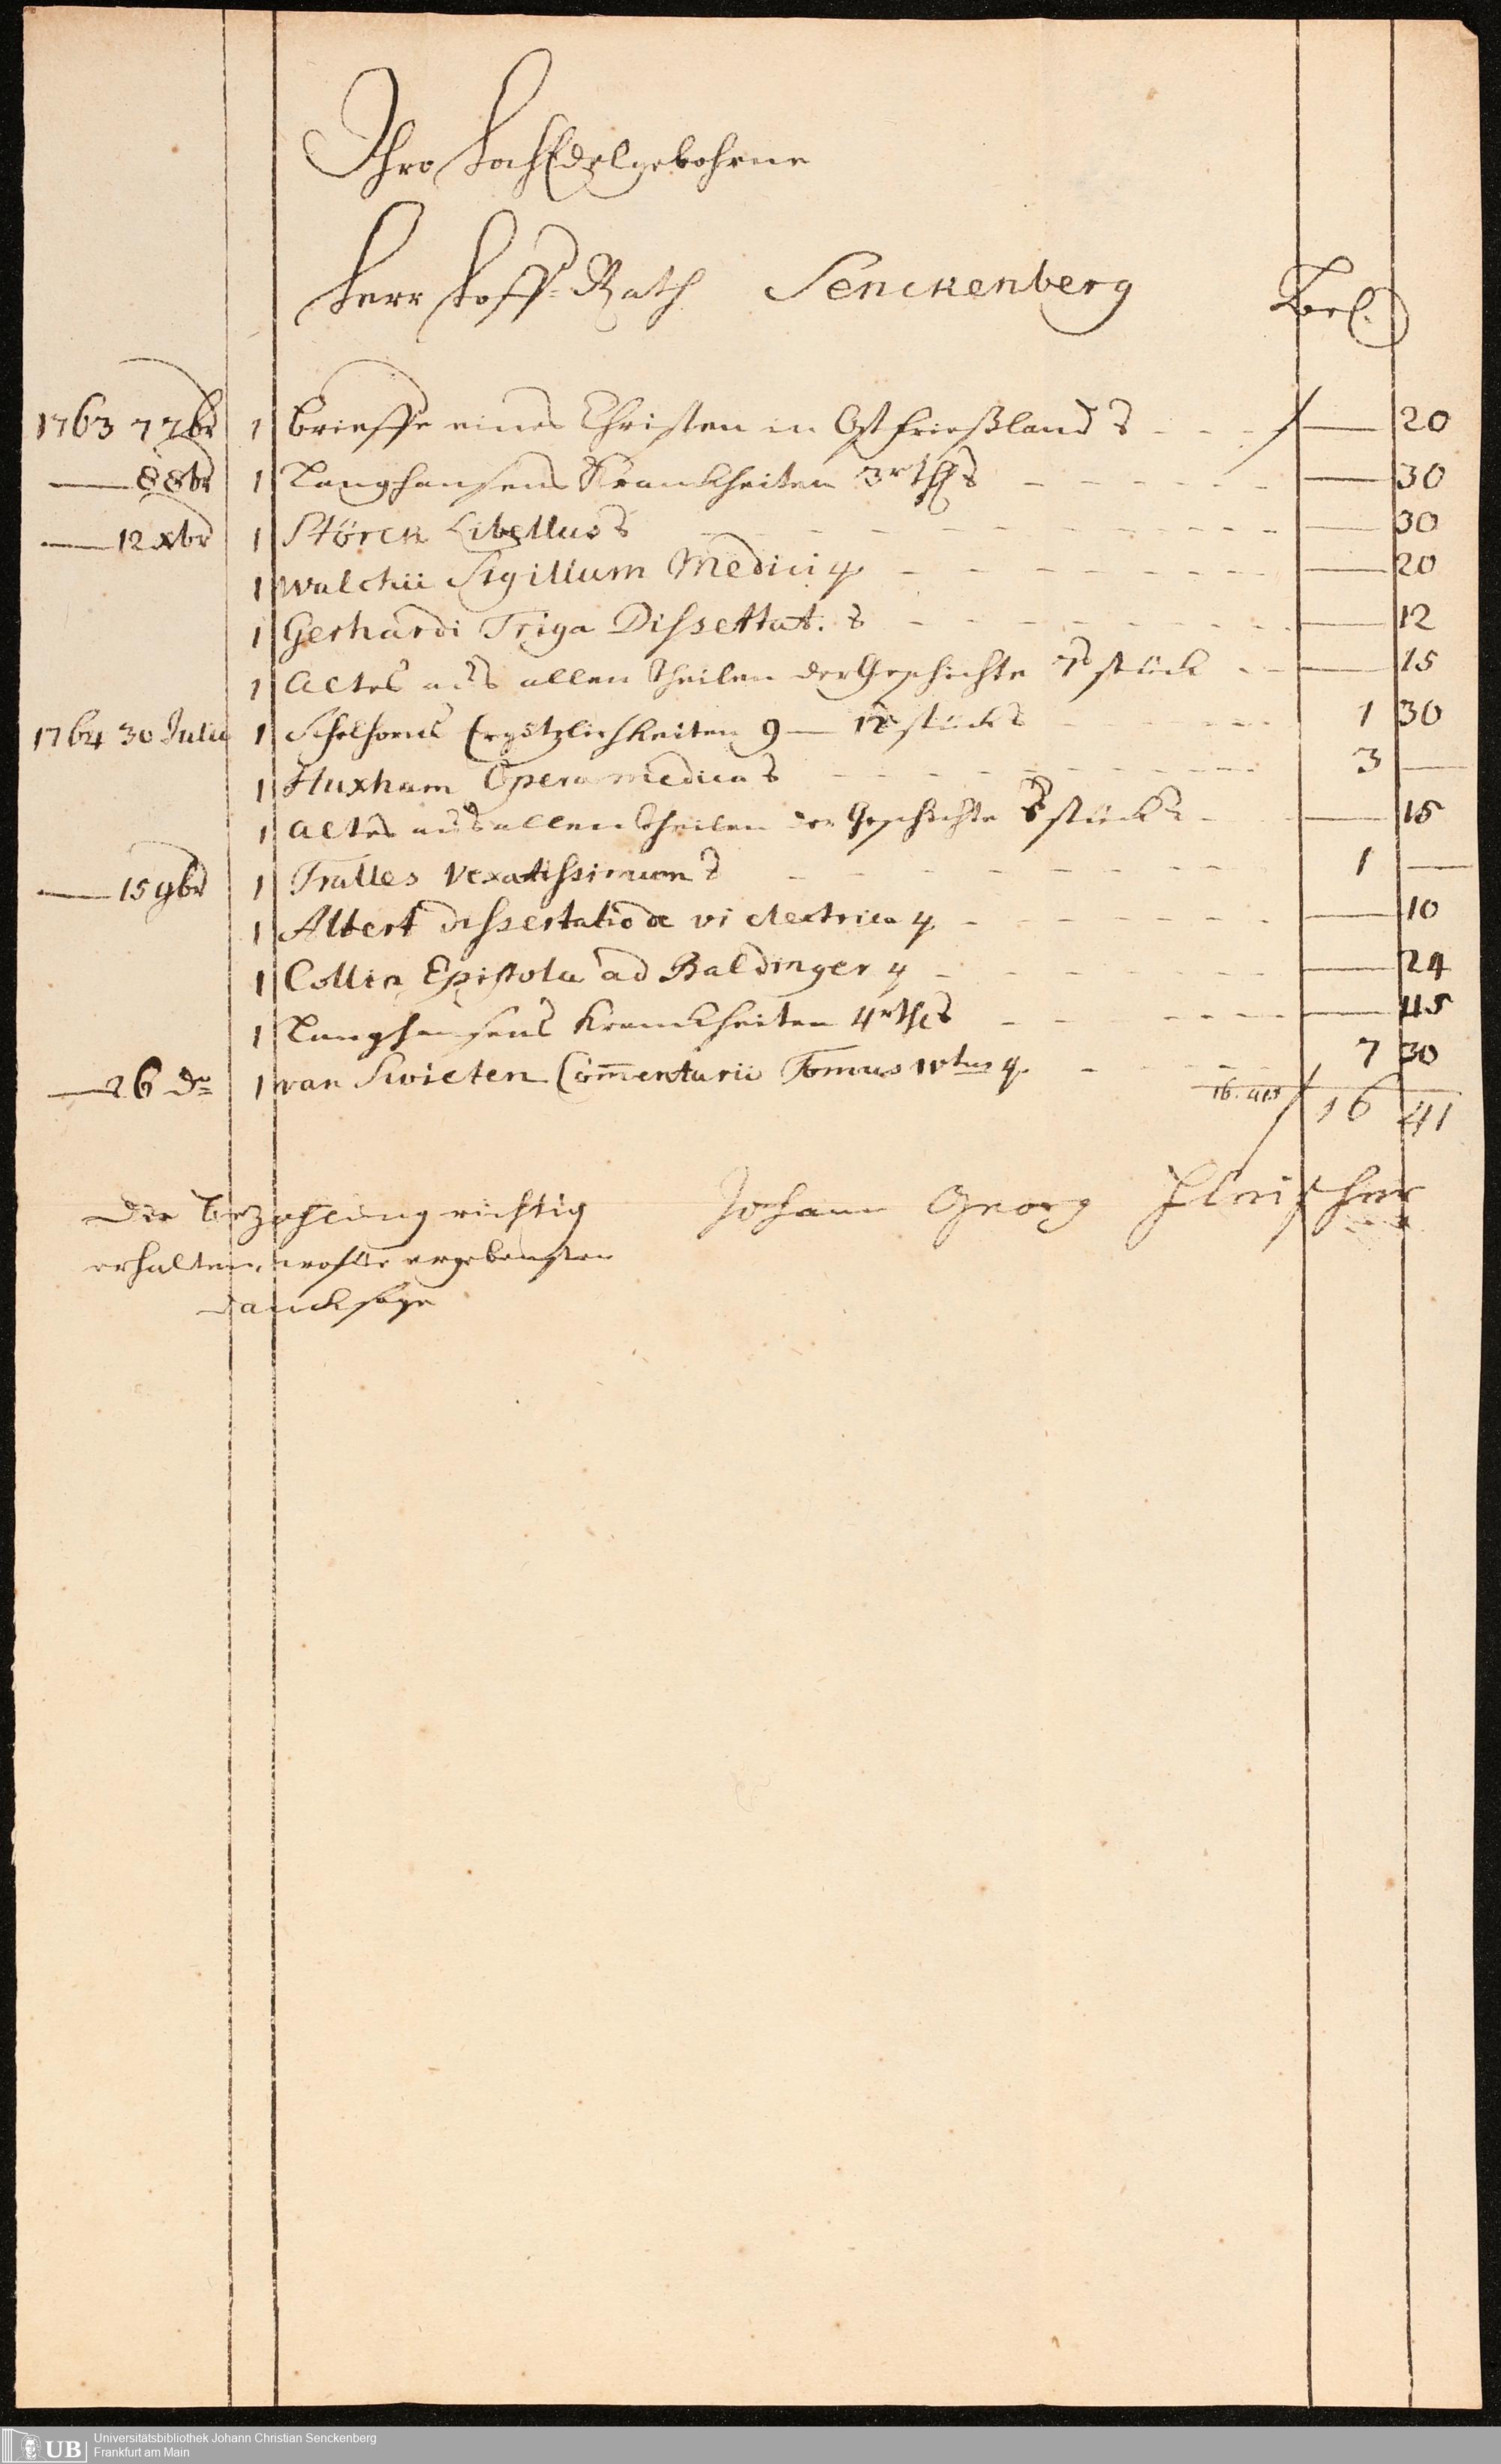 Ihro HochEdelgebohrne
Herr Hoff-Rath Senckenberg
1763 7 7br 1 Brieffe eines Christen in Ostfrießland 8 — 20
— 8 8br 1 Langhansens Kranckheiten 3r thl 8 — 30
— 12 xbr 1 Störck Libellus 8 — 30
1 Walchii Sigillum Medici 4. — 20
1 Gerhardi Triga Dissertat. 8 — 12
1 Actes aus allen Theilen der Geschichte 7s stück — 15
1764 30 Julii 1 Schelhorns Ergötzlichkeiten 9 — 12 stück 8 1 30
1 Huxham Opera medica 8 3 —
1 Actes aus allen Theilen der Geschichte 8s stück 8 — 15
— 15 9br 1 Tralles Vexatissimum 8 1 —
1 Albert dissertatio de vi electrica 4. — 10
1 Collin Epistola ad Baldinger 4 — 24
1 Langhansens Kranckheiten 4r thl 8 — 45
— 26 do 1 van Swieten Com̄entarii Tomus IVtus 4. 7 30
16 41
Johann Georg Fleischer
Die Bezahlung richtig
erhalten, wofür ergebensten
Danck sage
UB
Universitätsbibliothek Johann Christian Senckenberg
Frankfurt am Main